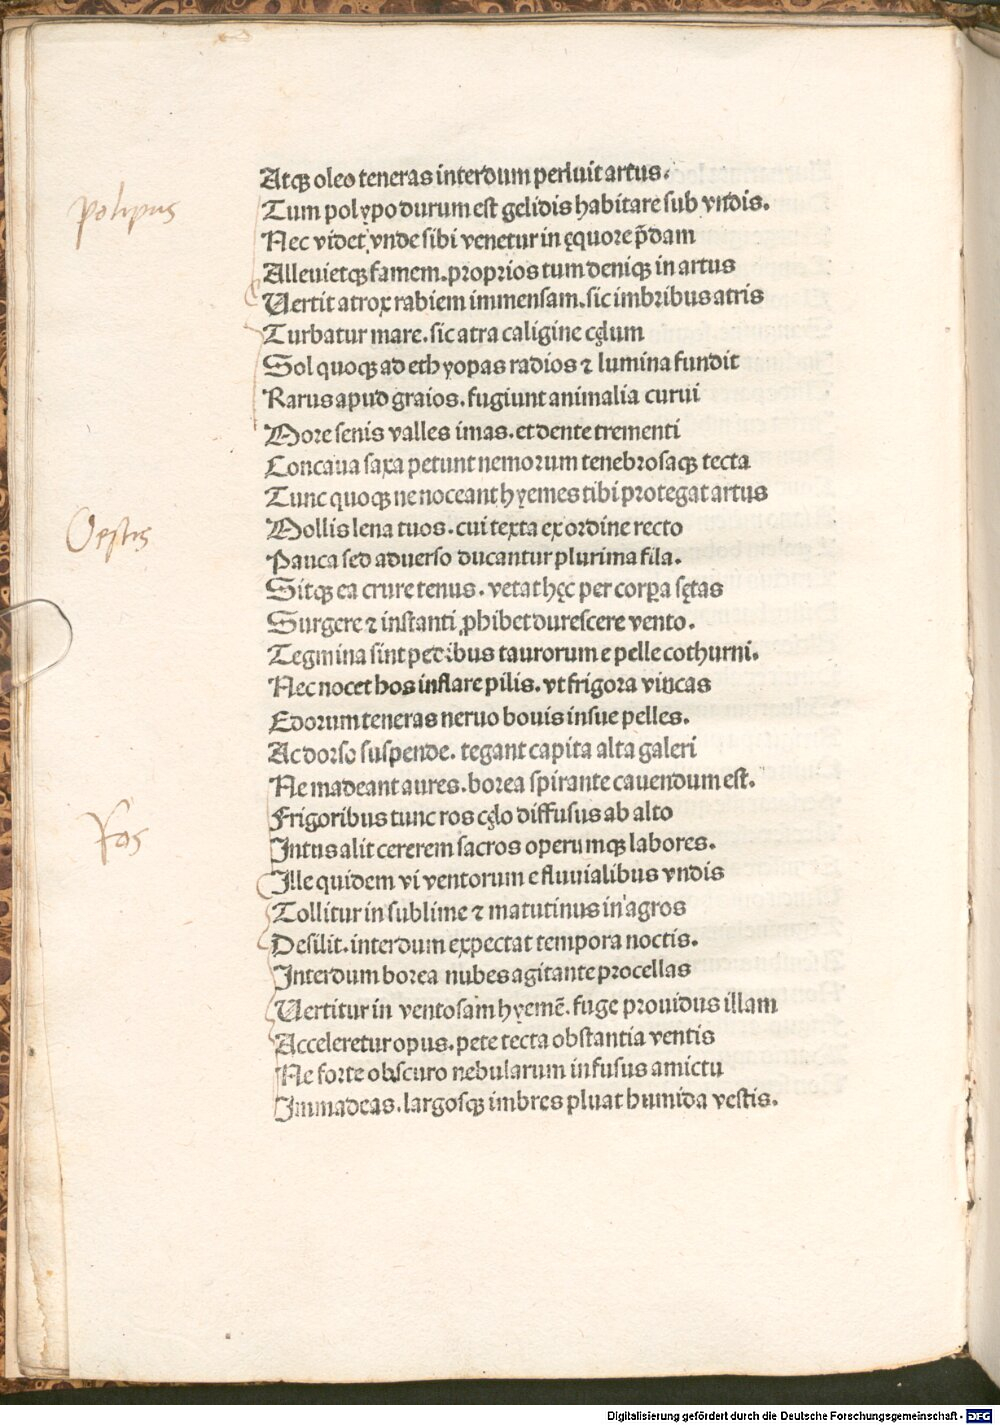 Atqꝫ oleo teneras interdum perluit artus.
polipus
Tum polypo durum est gelidis habitare sub vndis.
Nec videt vnde sibi venetur in ęquore p̄dam
Alleuietqꝫ famem. proprios tum deniqꝫ in artus
Uertit atrox rabiem immensam. sic imbribus atris
Turbatur mare. sic atra caligine cęlum
Sol quoqꝫ ad ethyopas radios ⁊ lumina fundit
Rarus apud graios. fugiunt animalia curui
More senis valles imas. et dente trementi
Concaua saxa petunt nemorum tenebrosaqꝫ tecta
Tunc quoqꝫ ne noceant hyemes tibi protegat artus
Vestis
Mollis lena tuos. cui texta ex ordine recto
Pauca sed aduerso ducantur plurima fila.
Sitqꝫ ea crure tenus. vetat hęc per corꝑa sętas
Surgere ⁊ instanti ꝓhibet durescere vento.
Tegmina sint pedibus taurorum e pelle cothurni.
Nec nocet hos inflare pilis. vt frigora vincas
Edorum teneras neruo bouis insue pelles.
Ac dorso suspende. tegant capita alta galeri
Ne madeant aures. borea spirante cauendum est.
Ros
Frigoribus tunc ros cęlo diffusus ab alto
Intus alit cererem sacros operumqꝫ labores.
Ille quidem vi ventorum e fluuialibus vndis
Tollitur in sublime ⁊ matutinus in agros
Desilit. interdum expectat tempora noctis.
Interdum borea nubes agitante procellas
Uertitur in ventosam hyemē. fuge prouidus illam
Acceleretur opus. pete tecta obstantia ventis
Ne forte obscuro nebularum infusus amictu
Immadeas. largosqꝫ imbres pluat humida vestis.
Digitalisierung gefördert durch die Deutsche Forschungsgemeinschaft - DFG